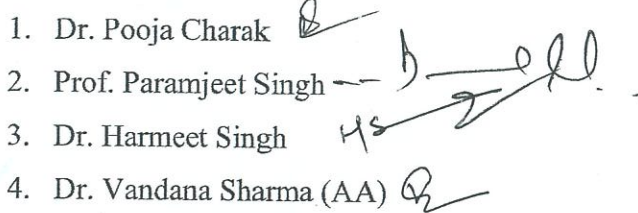 1. Dr. Pooja Charak
2. Prof. Paramjeet Singh
3. Dr. Harmeet Singh HS
4. Dr. Vandana Sharma (AA)